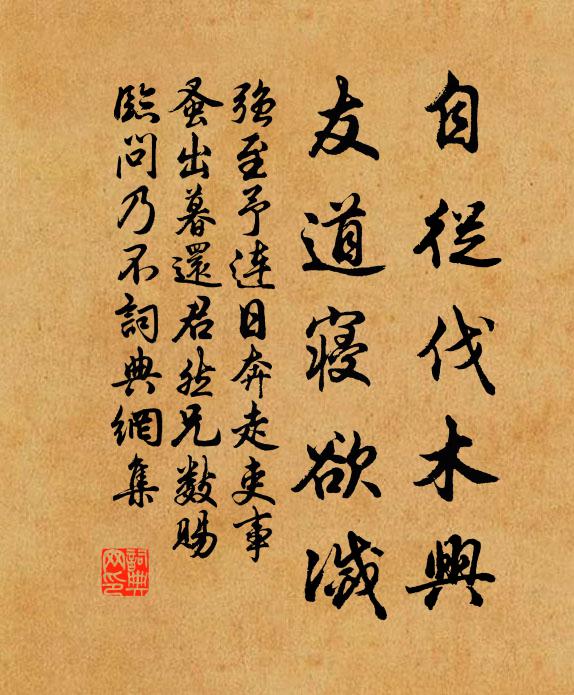 自從伐木興
友道寖欲滅
強至予連日奔走吏事
蚤出暮還君然兄數賜
臨問乃不詞典網集
詞典网印